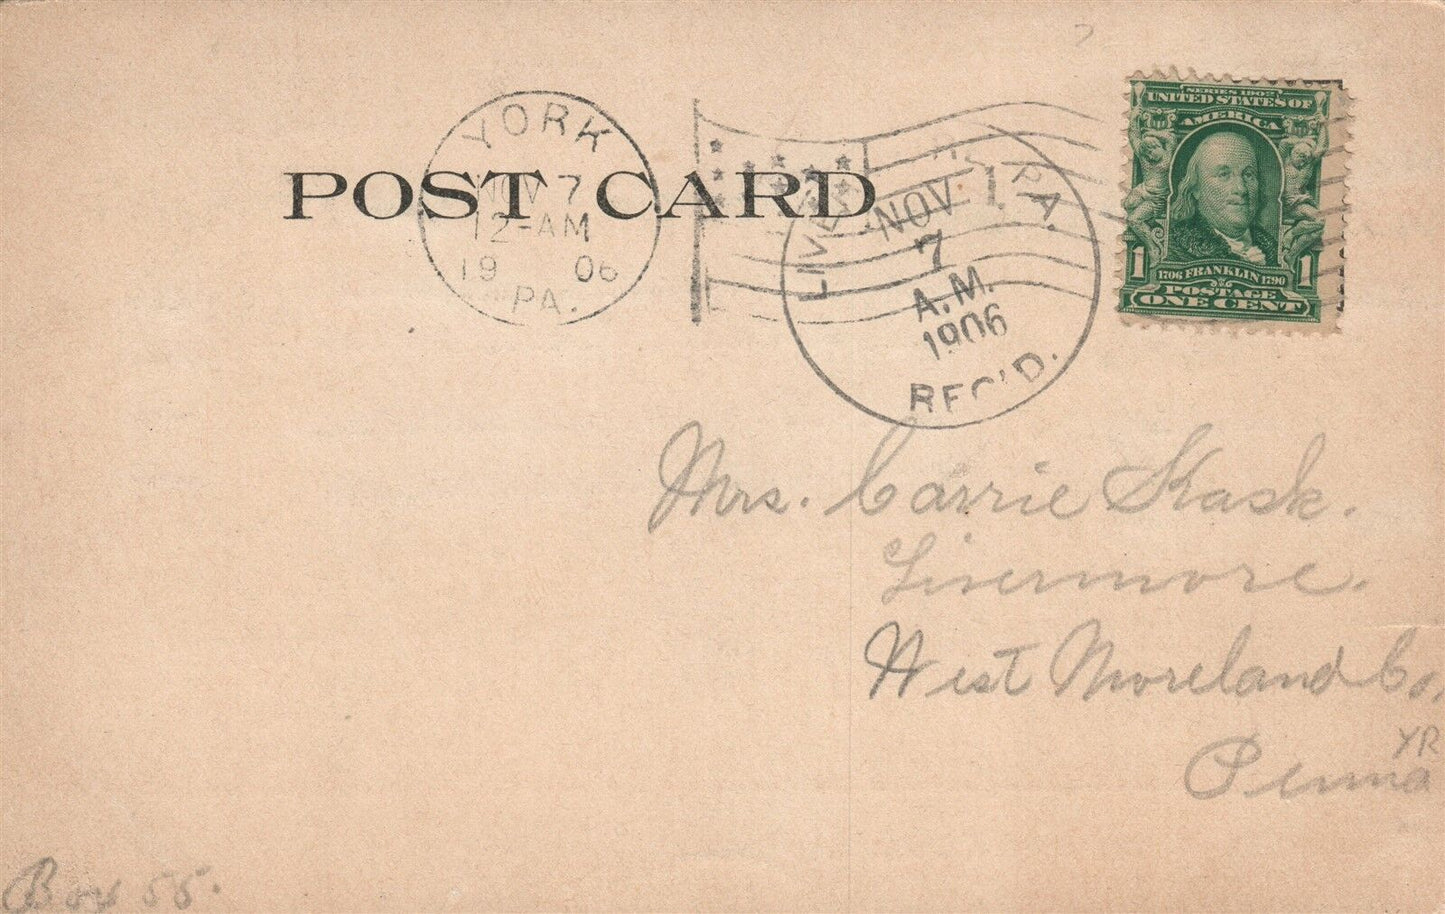 YORK
NOV 7
12-AM
19 06
PA.
POST CARD
NOV 7
7
A.M.
1906
REC'D.
SERIES 1902
UNITED STATES OF
AMERICA
1706 FRANKLIN 1790
1 1
POSTAGE
ONE CENT
Mrs. Carrie Kask.
Livermore.
West Moreland Co,
Penna
YR
Box 55.